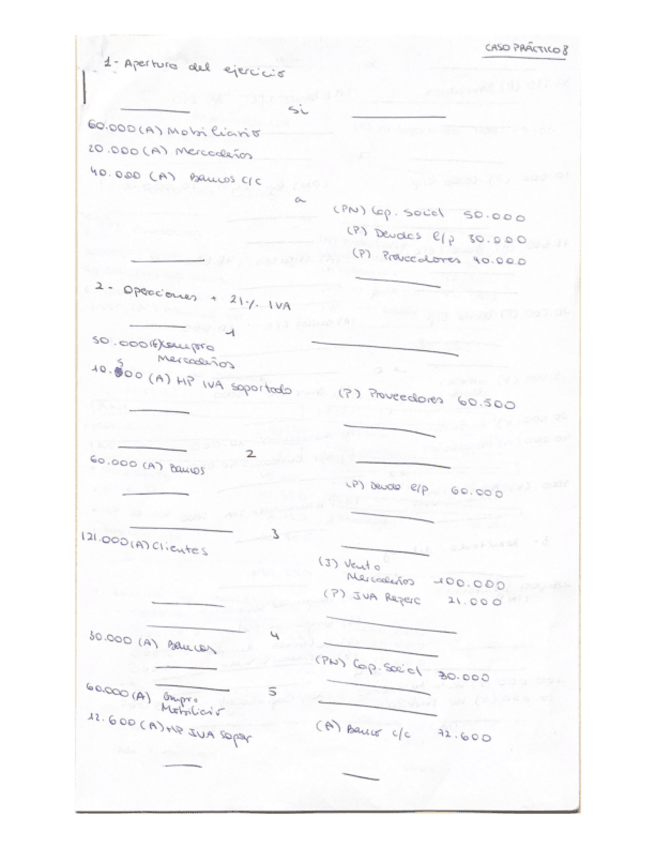 CASO PRÁCTICO 8
1- Apertura del ejercicio
si
60.000 (A) Mobiliario
20.000 (A) Mercaderías
40.000 (A) Bancos c/c
a
(PN) Cap. Social 50.000
(P) Deudas l/p 30.000
(P) Proveedores 40.000
2- Operaciones + 21% IVA
1
50.000 (G) Compra
Mercaderías
10.500 (A) HP IVA Soportado (P) Proveedores 60.500
2
60.000 (A) Bancos
(P) Deuda l/p 60.000
3
121.000 (A) Clientes
(I) Venta
Mercaderías 100.000
(P) IVA Reperc 21.000
4
30.000 (A) Bancos
(PN) Cap. Social 30.000
5
60.000 (A) Compra
Mobiliario
12.600 (A) HP IVA Sopor
(A) Banco c/c 72.600